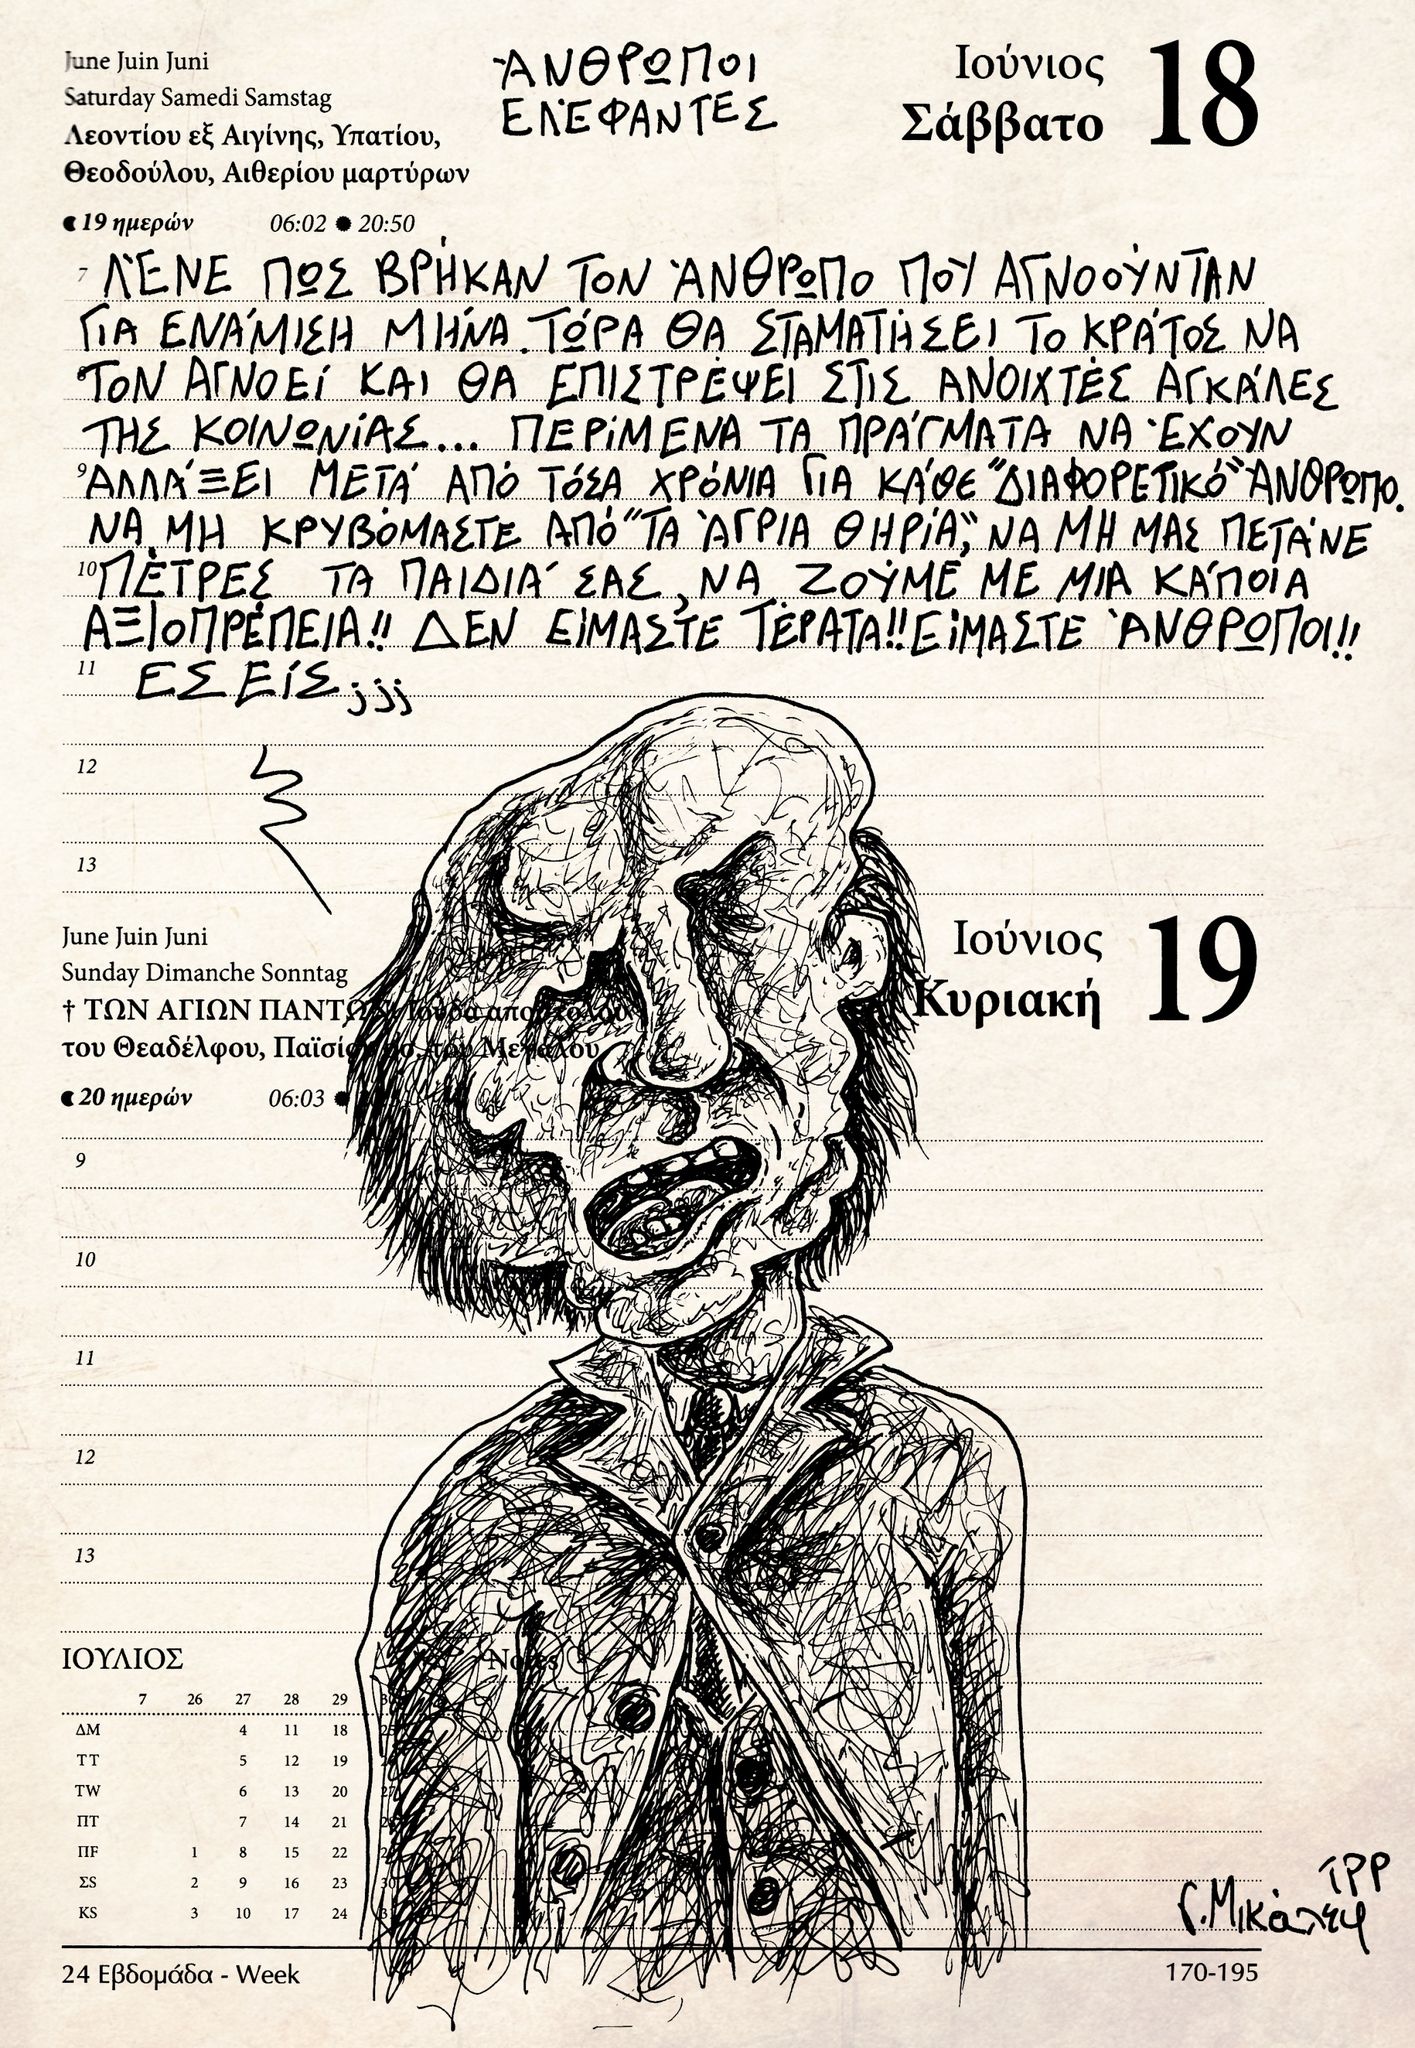 June Juin Juni
Saturday Samedi Samstag
Λεοντίου εξ Αιγίνης, Υπατίου,
Θεοδούλου, Αιθερίου μαρτύρων
19 ημερών 06:02 20:50
ΆΝΘΡΩΠΟΙ
ΕΛΕΦΑΝΤΕΣ
Ιούνιος
Σάββατο
18
7 ΛΈΝΕ ΠΩΣ ΒΡΉΚΑΝ ΤΟΝ ΆΝΘΡΩΠΟ ΠΟΥ ΑΓΝΟΟΎΝΤΑΝ
ΓΙΑ ΕΝΆΜΙΣΗ ΜΉΝΑ. ΤΏΡΑ ΘΑ ΣΤΑΜΑΤΉΣΕΙ ΤΟ ΚΡΆΤΟΣ ΝΑ
ΤΟΝ ΑΓΝΟΕΊ ΚΑΙ ΘΑ ΕΠΙΣΤΡΈΨΕΙ ΣΤΙΣ ΑΝΟΙΧΤΈΣ ΑΓΚΆΛΕΣ
ΤΗΣ ΚΟΙΝΩΝΊΑΣ... ΠΕΡΊΜΕΝΑ ΤΑ ΠΡΆΓΜΑΤΑ ΝΑ ΈΧΟΥΝ
9 ΑΛΛΆΞΕΙ ΜΕΤΆ ΑΠΌ ΤΌΣΑ ΧΡΌΝΙΑ ΓΙΑ ΚΆΘΕ "ΔΙΑΦΟΡΕΤΙΚΌ" ΆΝΘΡΩΠΟ.
ΝΑ ΜΗ ΚΡΥΒΌΜΑΣΤΕ ΑΠΌ "ΤΑ ΆΓΡΙΑ ΘΗΡΊΑ", ΝΑ ΜΗ ΜΑΣ ΠΕΤΆΝΕ
10 ΠΈΤΡΕΣ ΤΑ ΠΑΙΔΙΆ ΣΑΣ, ΝΑ ΖΟΎΜΕ ΜΕ ΜΙΑ ΚΆΠΟΙΑ
ΑΞΙΟΠΡΈΠΕΙΑ!! ΔΕΝ ΕΊΜΑΣΤΕ ΤΈΡΑΤΑ!! ΕΊΜΑΣΤΕ ΆΝΘΡΩΠΟΙ!!
11 ΕΣΕΊΣ;;;
12
13
June Juin Juni
Sunday Dimanche Sonntag
† ΤΩΝ ΑΓΙΩΝ ΠΑΝΤΩΝ, Ιούδα αποστόλου
του Θεαδέλφου, Παϊσίου του Μεγάλου
20 ημερών 06:03
Ιούνιος
Κυριακή
19
9
10
11
12
13
ΙΟΥΛΙΟΣ Notes
7 26 27 28 29 30
ΔM 4 11 18 25
ΤT 5 12 19 26
ΤW 6 13 20 27
ΠT 7 14 21 28
ΠF 1 8 15 22 29
ΣS 2 9 16 23 30
ΚS 3 10 17 24 31
TPP
Γ. Μικάλεφ
24 Εβδομάδα - Week
170-195